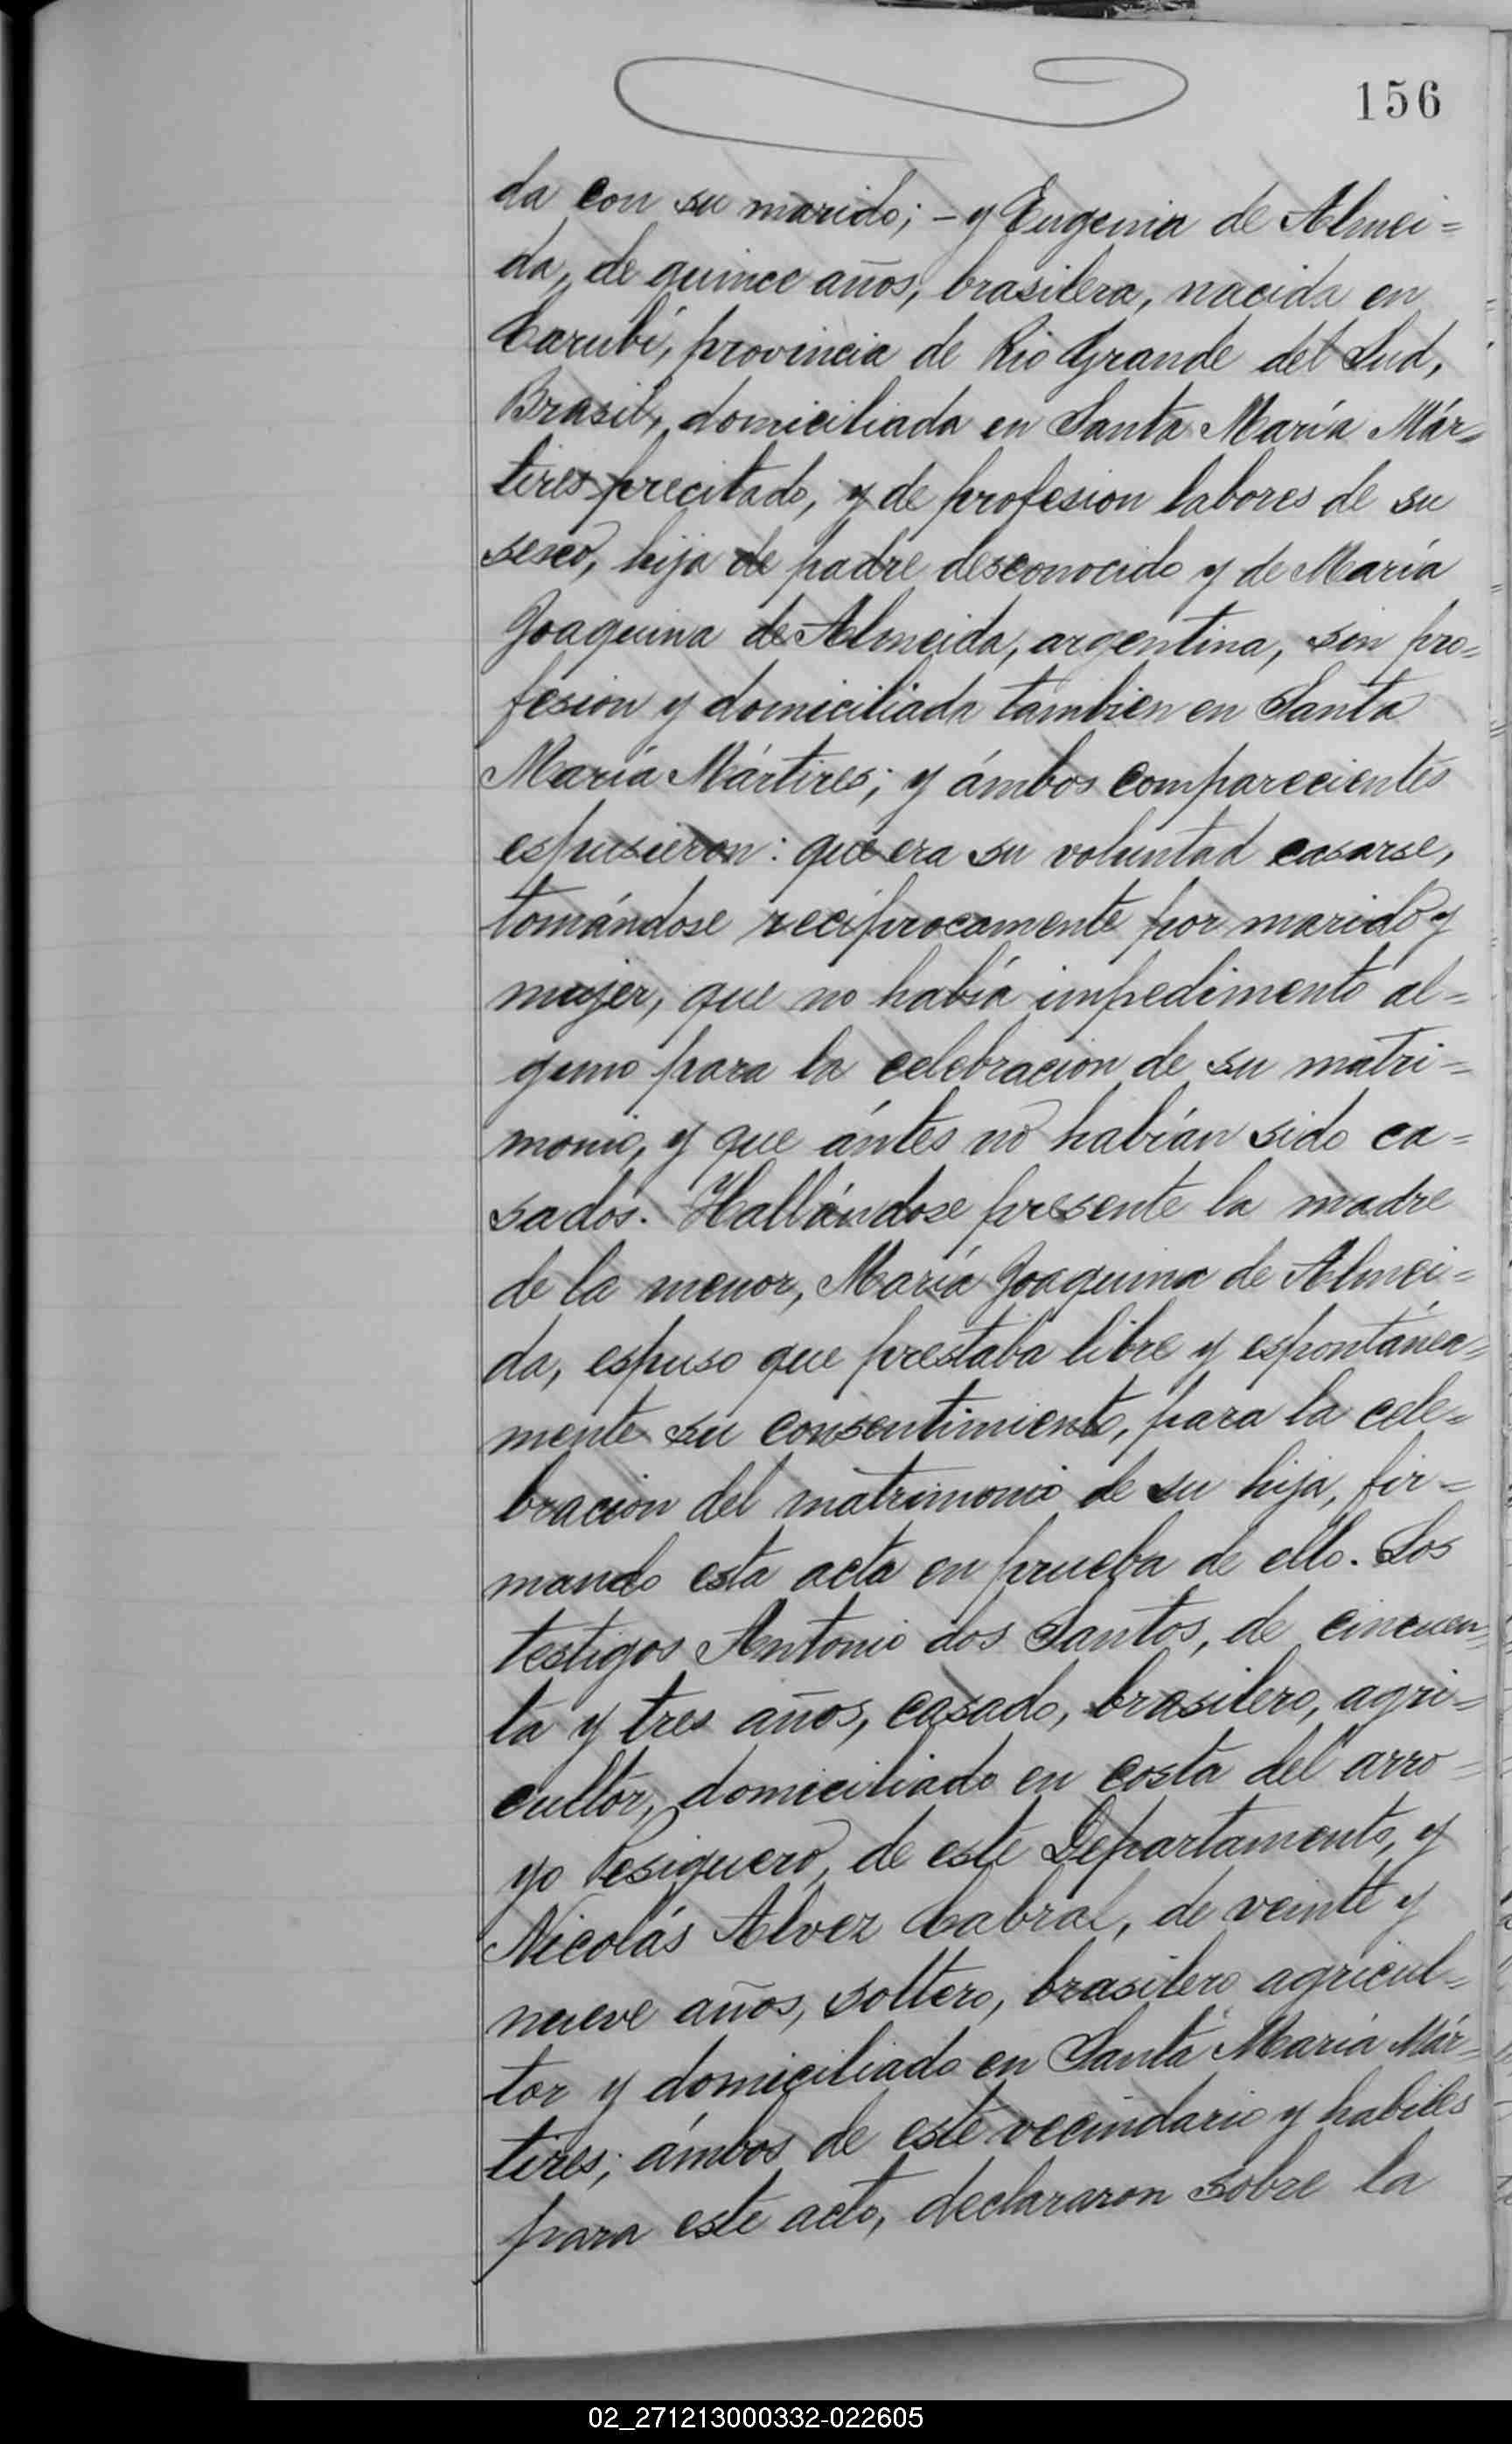 156
da con su marido; – y Eugenia de Almei=
da, de quince años, brasilera, nacida en
Carubi, provincia de Rio Grande del Sud,
Brasil, domiciliada en Santa María Már=
tires precitado, y de profesion labores de su
sexo, hija de padre desconocido y de María
Joaquina de Almeida, argentina, sin pro=
fesion y domiciliada tambien en Santa
María Mártires; y ámbos comparecientes
espusieron: que era su voluntad casarse,
tomándose recíprocamente por marido y
mujer, que no había impedimento al=
guno para la celebracion de su matri=
monio, y que ántes no habían sido ca=
sados. Hallándose presente la madre
de la menor, María Joaquina de Almei=
da, espuso que prestaba libre y espontánea=
mente su consentimiento, para la cele=
bracion del matrimonio de su hija, fir=
mando esta acta en prueba de ello. Los
testigos Antonio dos Santos, de cincuen=
ta y tres años, casado, brasilero, agri=
cultor, domiciliado en costa del arro=
yo Pesiguero, de este Departamento, y
Nicolás Alvez Cabral, de veinte y
nueve años, soltero, brasilero agricul=
tor y domiciliado en Santa María Már=
tires; ámbos de este vecindario y habiles
para este acto, declararon sobre la
02_271213000332-022605